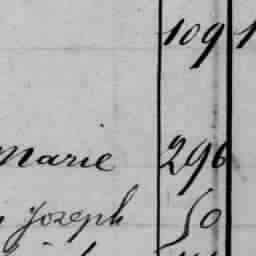 109
Marie 296
Joseph 50